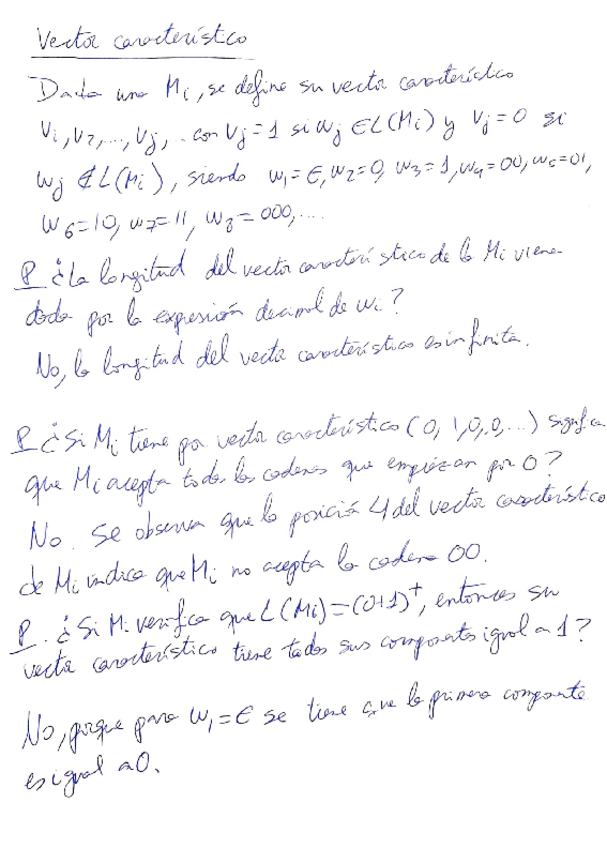 Vector característico
Dada una Mi, se define su vector característico
V1, V2, ..., Vj, .. con Vj = 1 si wj ∈ L(Mi) y Vj = 0 si
wj ∉ L(Mi), siendo w1 = ϵ, w2 = 0, w3 = 1, w4 = 00, w5 = 01,
w6 = 10, w7 = 11, w8 = 000, ....
P ¿La longitud del vector característico de la Mi viene
dada por la expresión decimal de wi?
No, la longitud del vector característico es infinita.
P ¿Si Mi tiene por vector característico (0, 1, 0, 0, ...) significa
que Mi acepta todas las cadenas que empiezan por 0?
No. Se observa que la posición 4 del vector característico
de Mi indica que Mi no acepta la cadena 00.
P. ¿Si Mi verifica que L(Mi) = (0+1)⁺, entonces su
vector característico tiene todas sus componentes igual a 1?
No, porque para w1 = ϵ se tiene que la primera componente
es igual a 0.